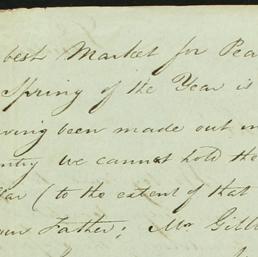 best Market for Pea
Spring of the Year is
ving been made out in
ntry we cannot hold the
lar (to the extent of that
your Father; Mr Gill